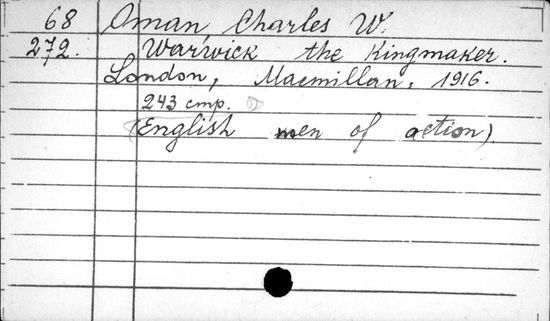 68 Oman, Charles W.
272. Warwick the Kingmaker.
London, Macmillan, 1916.
243 cmp.
(English men of action)